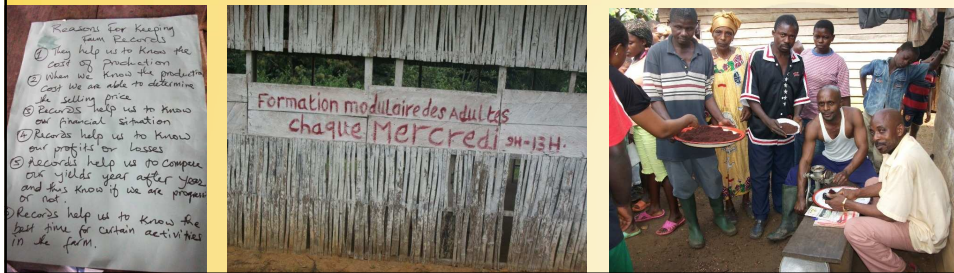 Reasons For Keeping
Farm Records
① They help us to Know the
cost of production
② When we Know the production
cost we are able to determine
the selling price
③ Records help us to Know
our financial situation
④ Records help us to Know
our profits or losses
⑤ Records help us to compare
our yields year after year
and thus Know if we are progress
or not.
Records help us to Know the
best time for certain activities
in the farm.
Formation modulaire des Adultes
chaque Mercredi 9H-13H.